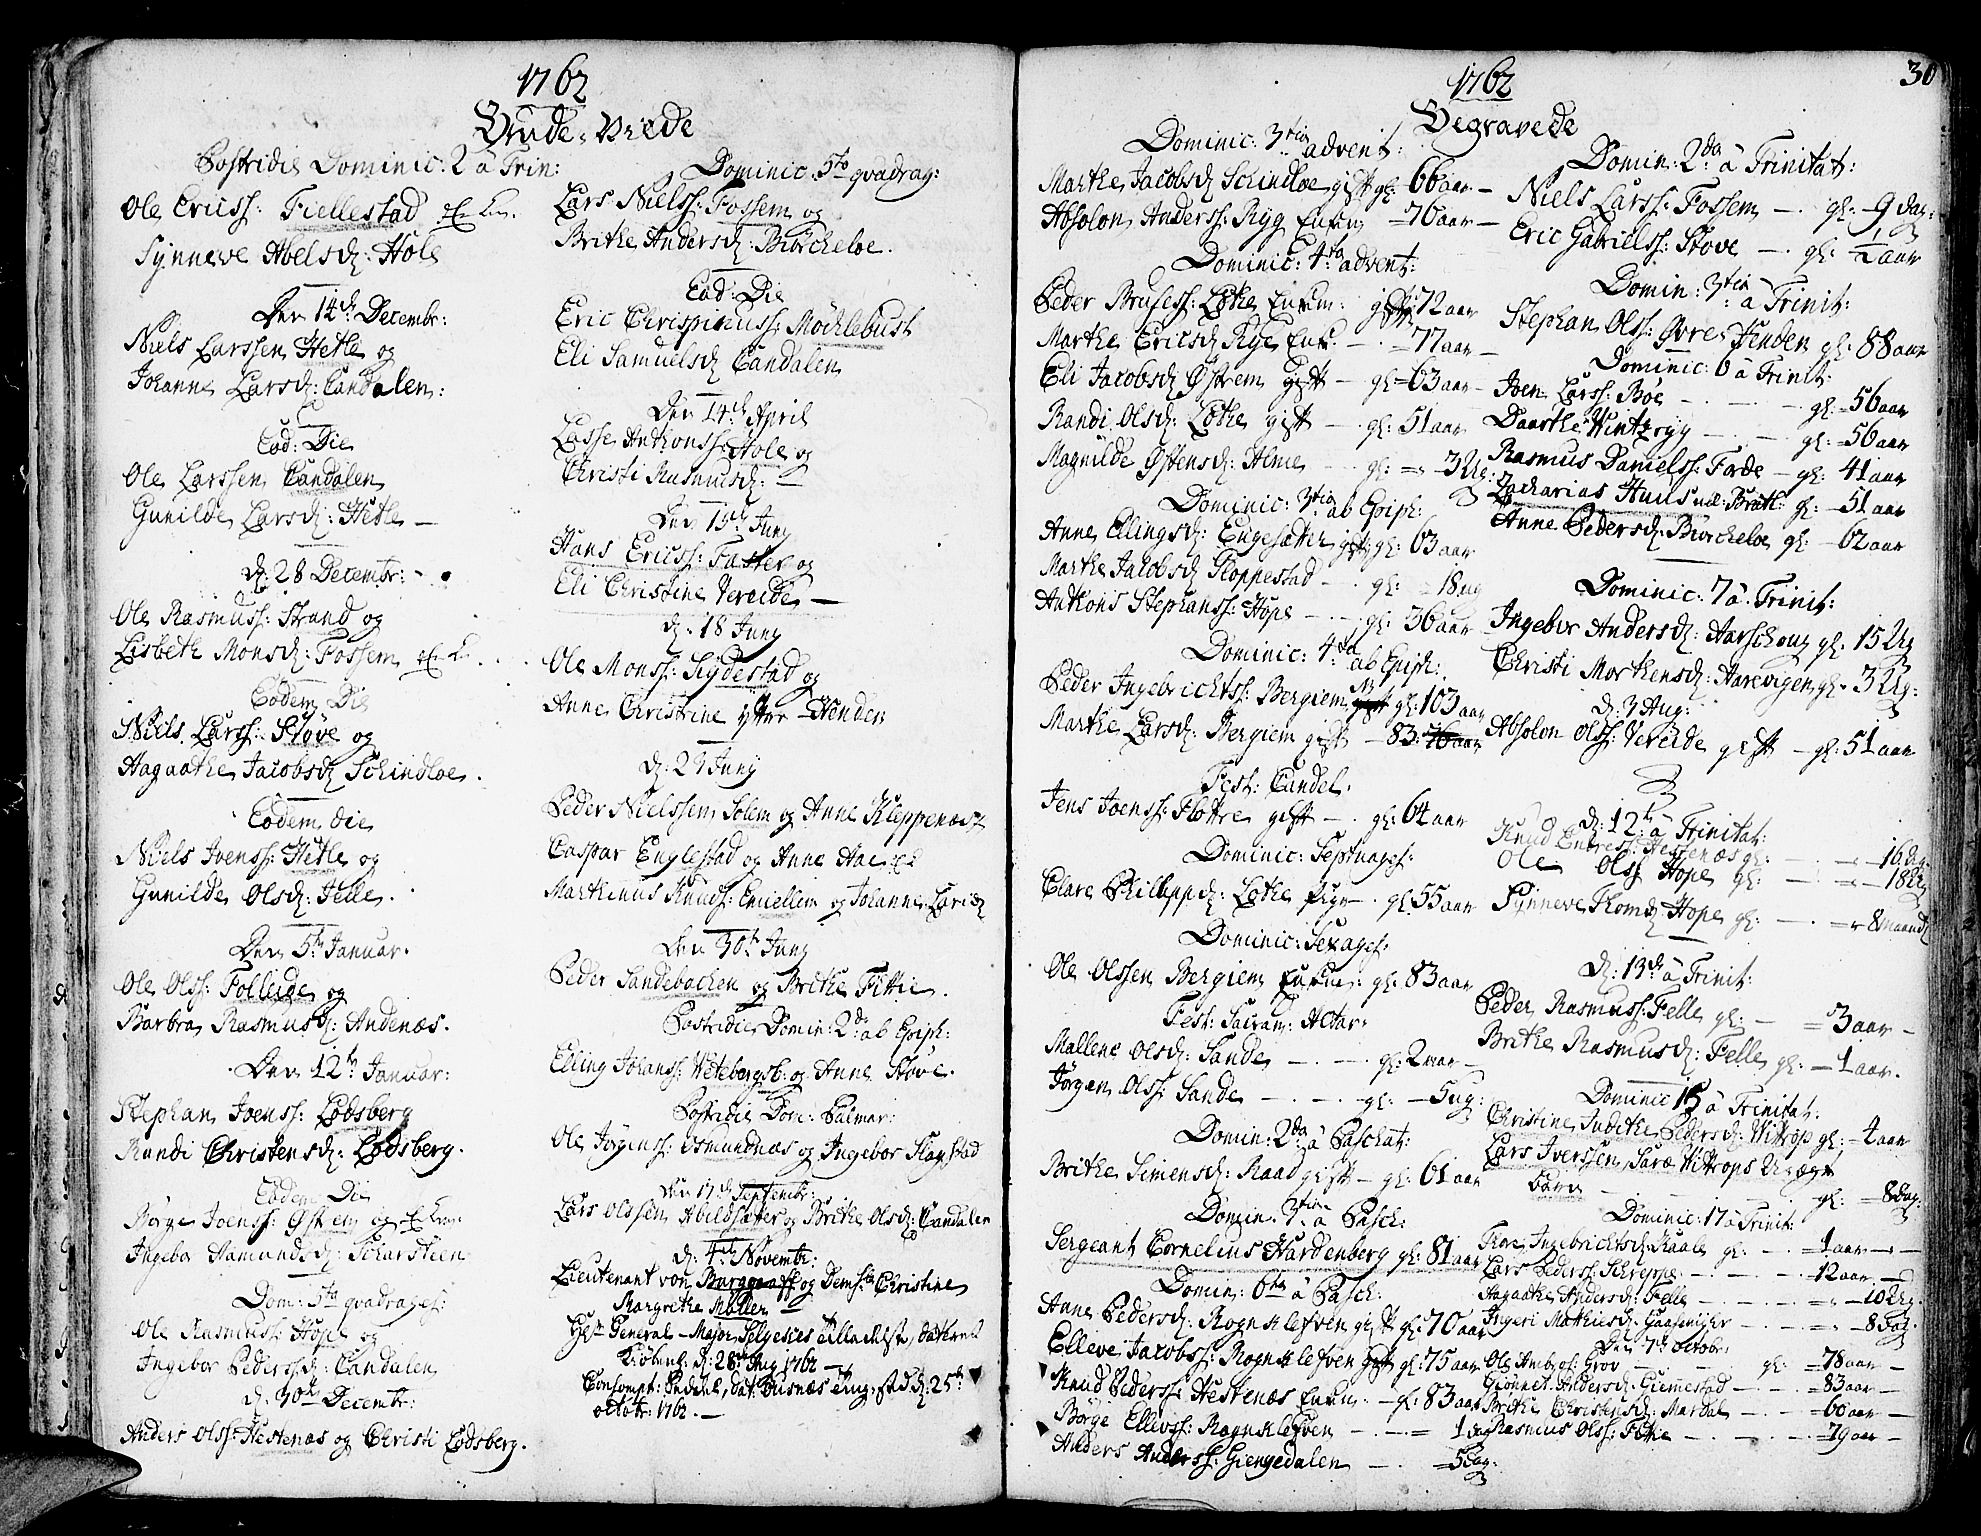 1762
Brude-Viede
Postridie Dominic: 2 a Trin:
Ole Ericss: Fiellestad
Synneve Abelsd: Hole
Den 14de Decembr:
Niels Larssen Hetle og
Johanne Larsd: Candalen:
Eod: Die
Ole Larssen Candalen
Gunilde Larsd: Hetle —
d: 28 Decembr:
Ole Rasmuss: Strand og
Lisbeth Monsd: Fossem
Eodem Die
Niels Larss: Støve og
Aagaathe Jacobsd Schindloe.
Eodem die
Niels Joenss: Hetle og
Gunilde Olsd: Felle.
Den 5te Januar.
Ole Olss: Folleide og
Barbra Rasmusd: Andenæs.
Den 12te Januar:
Stephan Joenss: Lodsberg
Randi Christensd: Lodsberg.
Eodem Die
Børge Joenss: Østrem og
Ingebor Aamundsd: Scharsteen
Dom: 5ta qvadrages:
Ole Rasmuss: Hope og
Ingebor Pedersd: Candalen
d: 30te Decembr:
Anders Olss: Hestenæs og Christi Lodsberg.
Dominic. 5to qvadrag:
Lars Nielss: Fossem og
Brithe Andersd: Biörcheloe.
Eod: Die
Eric Chrispinuss: Möchlebust
Eli Samuelsd Candalen
Den 14de April
Lasse Anthonss: Hole og
Christi Rasmusd: —
Den 15de Juny
Hans Ericss: Fatter og
Eli Christine Vereide —
d: 18 Juny
Ole Monss: Sigdestad og
Anne Christine ytre Henden
d: 29 Juny
Peder Nielssen Solem og Anne Kleppenæs
Caspar Englestad og Anne Aae
Marthinus Knuds: Emellem og Johanne Larsd
Den 30te Juny
Peder Sandebachen og Brithe Fettie.
Postridie Domin: 2da ab Epiph:
Elling Johans: Vetebergsb: og Anne Støve.
Postridie Dom: Palmar:
Ole Jørgenss: Osmundnæs og Ingebor Slagstad
Den 17de Septembr:
Lars Olssen Abildsæter og Brithe Olsd: Candalen
d: 4de Novembr:
Lieutenant von Burggraff og Demslle Christine
Margrethe Müller
Hr General-Major Selgesies tilladelse, dateret
Kiøbenh: d: 28de Aug 1762 —
Consumpt: Sedele, dat: Dusnæs d: 25de
octobr: 1762. —
1762
30
Begravede
Dominic: 3tia advent:
Marthe Jacobsd Schindloe gift gl: 66 aar —
Absolon Anderss: Ryg Enkm = 76 aar —
Dominic: 4ta advent:
Peder Brusess: Løthe Enkm: gl: 72 aar
Marthe Ericsd Rye Enk: — = 77 aar —
Eli Jacobsd Østrem gift — gl = 63 aar —
Randi Olsd: Løthe gift — gl: 51 aar
Magnilde Østensd: Alme — gl: = 3 Ug:
Dominic: 3tia ab Epiph:
Anne Ellingsd: Engesætter gift gl: 63 aar
Marthe Jacobsd Floppestad — gl: = 18 ug
Anthons Stephanss: Hope — gl: 36 aar
Dominic: 4ta ab Epiph:
Peder Ingebrichtss: Bergiem gl: 103 aar
Marthe Larsd: Bergiem gift — 83: 76 aar
Fest: Candel.
Jens Joenss: Flottre gift — gl: 64 aar
Dominic: Septuages:
Clare Philippsd: Løthe Pige — gl: 55 aar
Dominic: Sexages:
Ole Olssen Bergiem Enkm: gl: 83 aar
Fest: Sacram: Altar:
Mallene Olsd: Sande — gl: 2 aar —
Jørgen Olss: Sande — gl: — 5 ug:
Domin: 2da a Paschat:
Brithe Simensd: Raad gift — gl: 61 aar
Domin: 3tia a Pasch:
Sergeant Cornelius Hardenberg gl: 81 aar
Domin: 6ta a Pasch:
Anne Pedersd: Rognklefven gift gl: 70 aar
Elleve Jacobss: Rognklefven gift gl: 75 aar
Knud Pederss: Hestenæs Enkm: — gl: 83 aar
Børge Ellevss: Rognklefven — = 1 dag
Anders Anderss: Giengedalen — = 5 dag:
Domin: 2da a Trinitat:
Niels Larss: Fossem — gl: — 9 dag:
Eric Gabrielss: Støve — gl: — 1/2 aar
Domin: 3tia a Trinit:
Stephan Olss: Øvre Henden gl: 88 aar
Dominic: 6 a Trinit:
Joen Larss: Böe — gl: = 56 aar
Daarthe Hintz ryg — gl: = 56 aar
Rasmus Danielss: Förde — gl: 41 aar
Zacharias Huus gl: — 51 aar
Anne Pedersd. Biörcheloe gl: — 62 aar
Dominic: 7 a Trinit:
Ingebor Andersd: Aarschoug gl: 15 Ug
Christi Morthensd: Aarevigen gl = 3 Ug:
d: 3 Aug:
Absolon Olss: Vereide gift — gl: 51 aar
d: 12te a Trinitat:
Knud Endress: Hestenæs gl: — = 16 dag:
Ole Olss Hope gl: — = 18 Ug
Synneve Thomd: Hope gl: — = 8 maand
d: 13de a Trinit:
Peder Rasmuss: Felle gl: — = 3 aar —
Brithe Rasmusd: Felle gl: — 1 aar.
Dominic 15 a Trinitat:
Christine Judithe Pedersd: Wittrop gl: — 4 aar
Lars Iverssen, Saræ Wittrops Uægte
barn — gl: — 8 dag:
Dominic: 17 a Trinit:
Thore Ingebrichtsd: Raale gl: — = 1 aar —
Lars Pederss: Schreppe — 12 aar —
Aagaathe Andersd: Felle — = 10 Ug.
Ingeri Mathiasd: Gaasemyhr — = 8 dag.
Den 7de octobr:
Ole Ambros: Grov — gl: = 78 aar —
Giönnet Andersd: Giemmestad — = 83 aar —
Brithe Christensd: Mardal — = 60 aar —
Rasmus Olss: Fitie — = 79 aar —